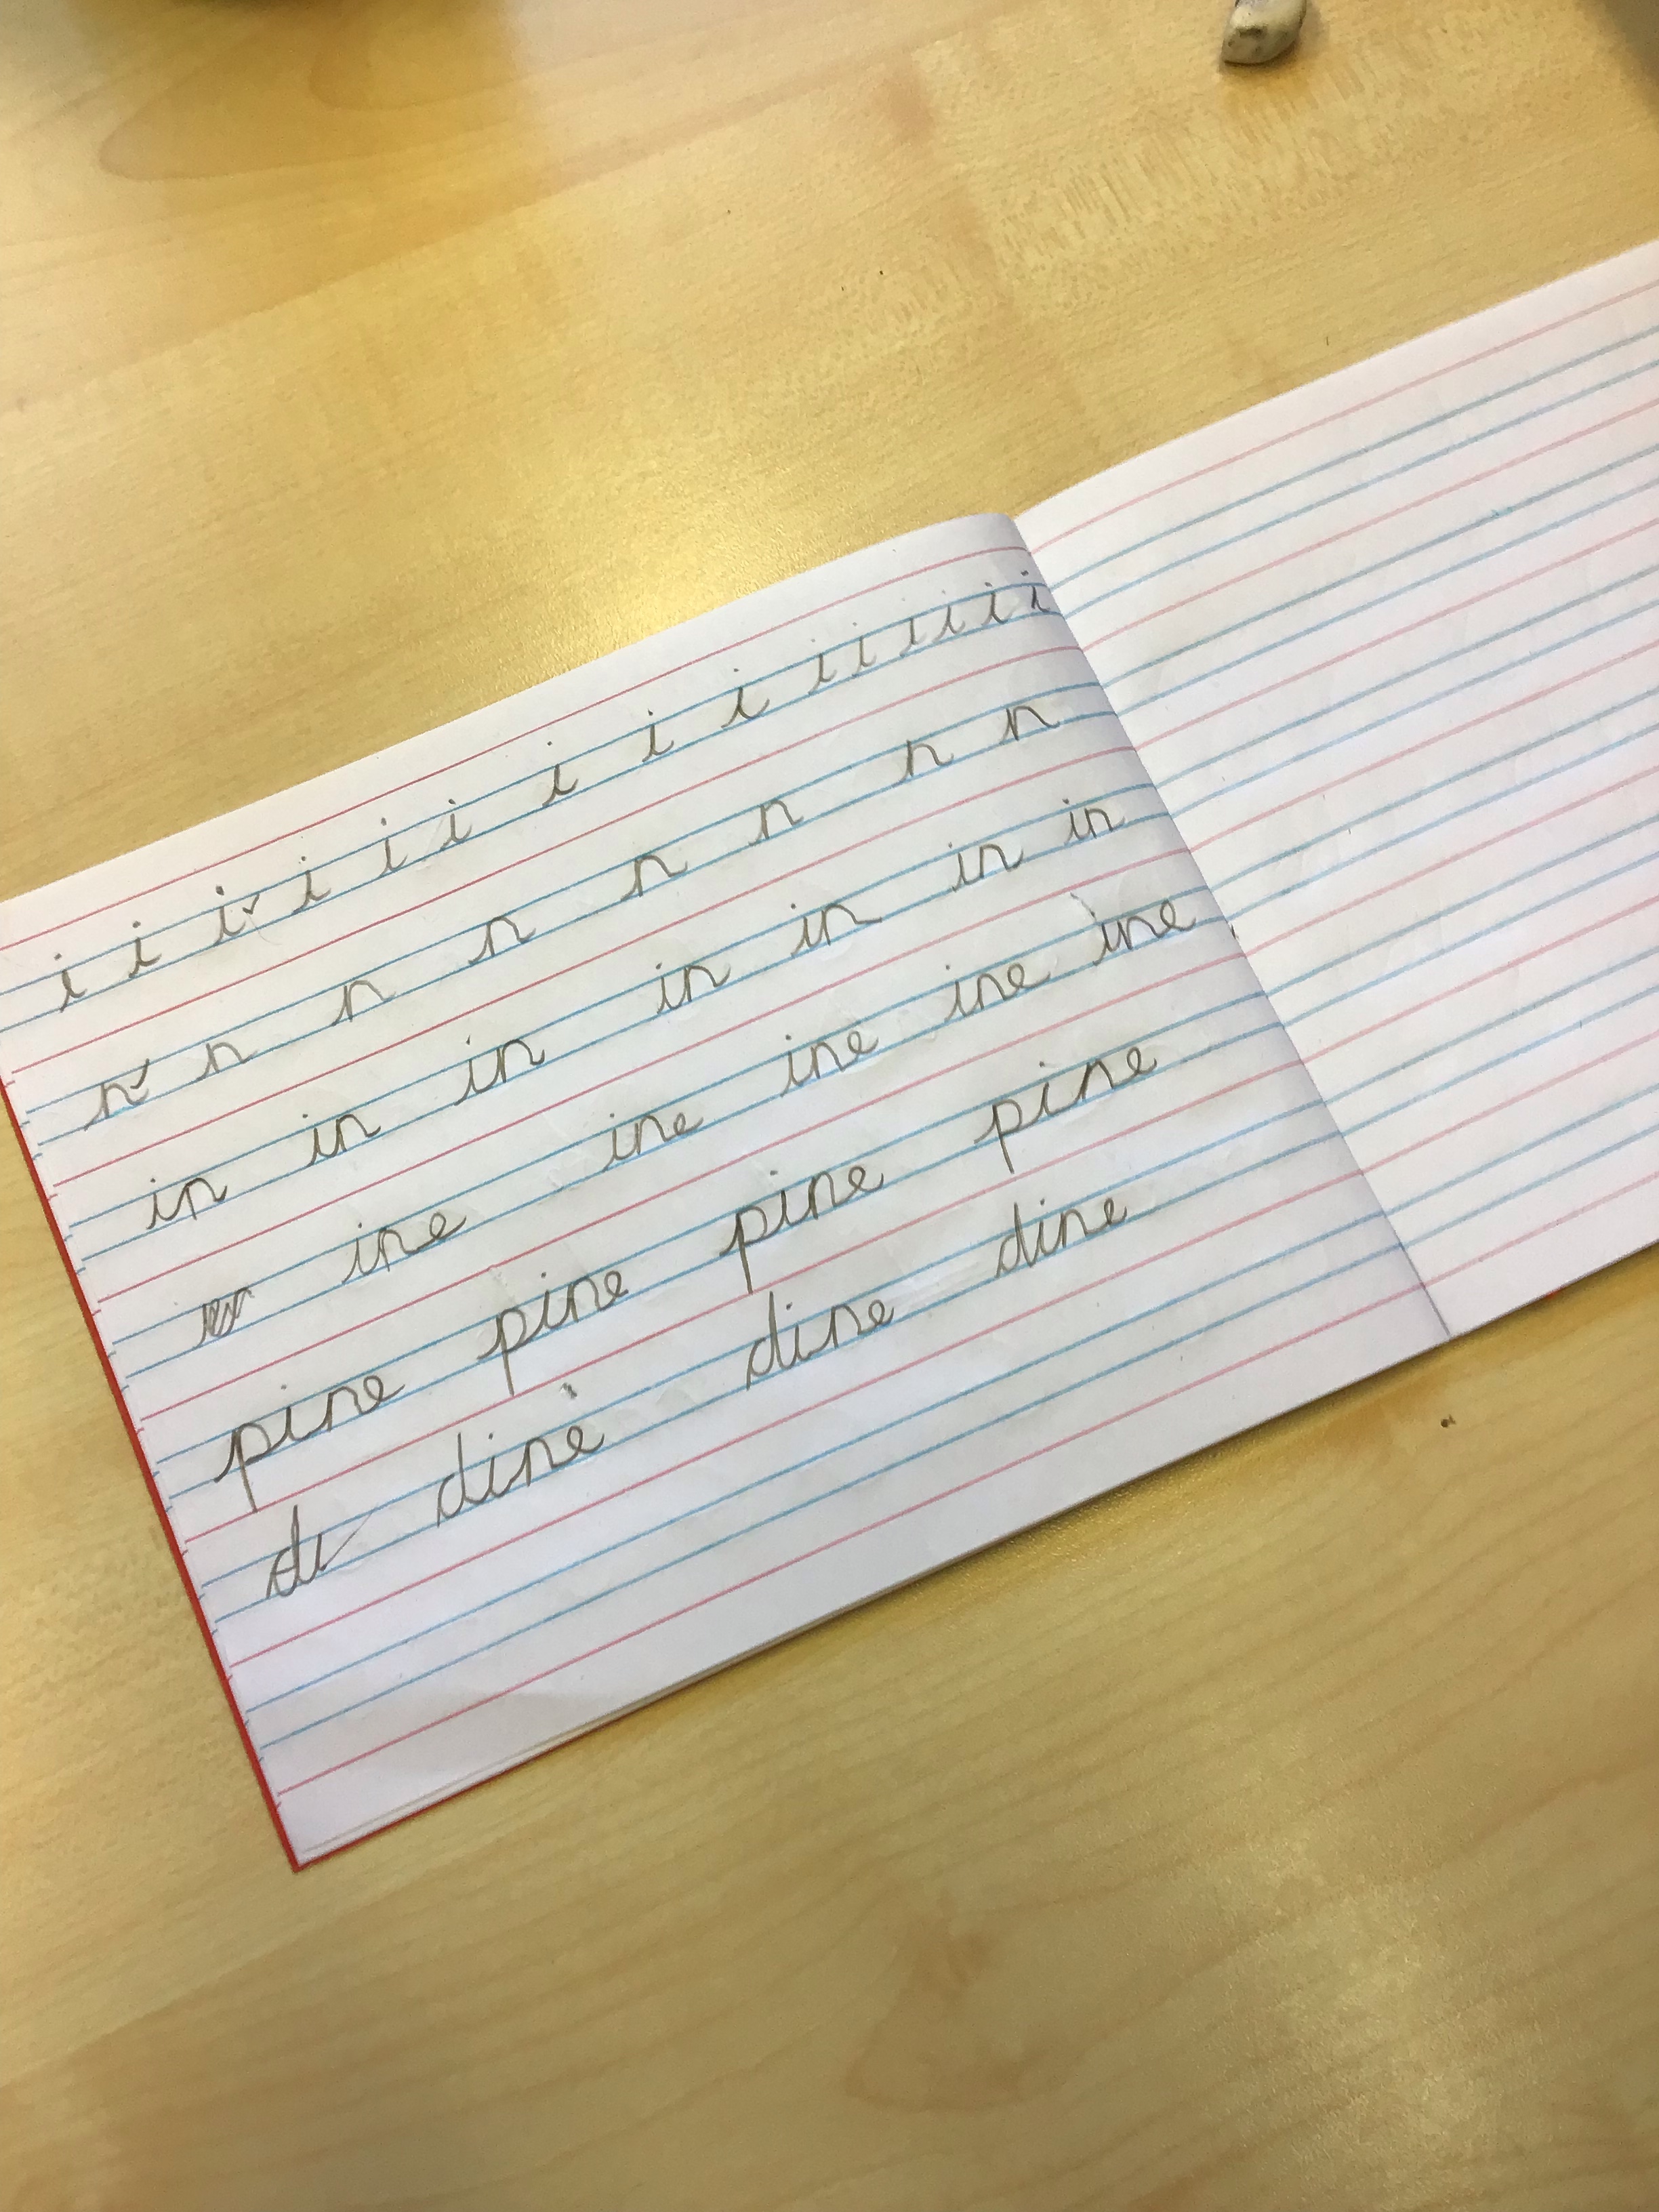 i i i i i i i i i i i i i i i
n n n n n n n n
in in in in in in in
ine ine ine ine ine
pine pine pine pine
di dine dine dine